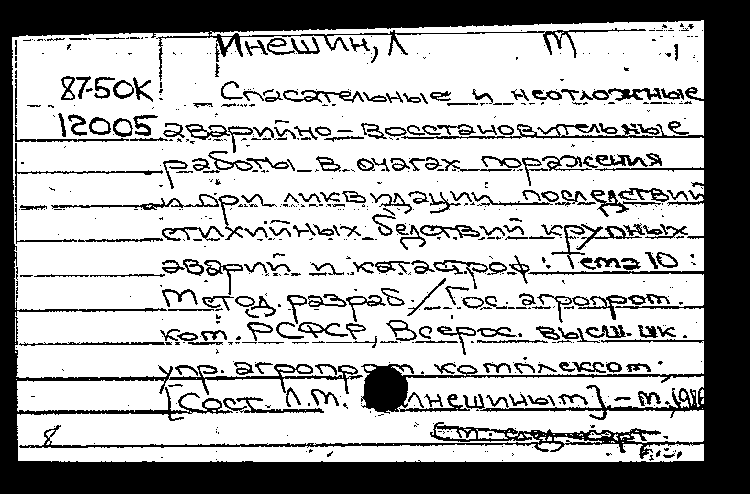 Инешин, Л М
87-50К Спасательные и неотложные
12005 аварийно-восстановительные
работы в очагах поражения
и при ликвидации последствий
стихийных бедствий крупных
аварий и катастроф: Тема 10:
Метод. разраб. / Гос. агропром.
ком. РСФСР, Всерос. высш. шк.
упр. агропром. комплексом;
[Сост. Л.М. Инешиным]. - М., 1986
8 См. след. карт.